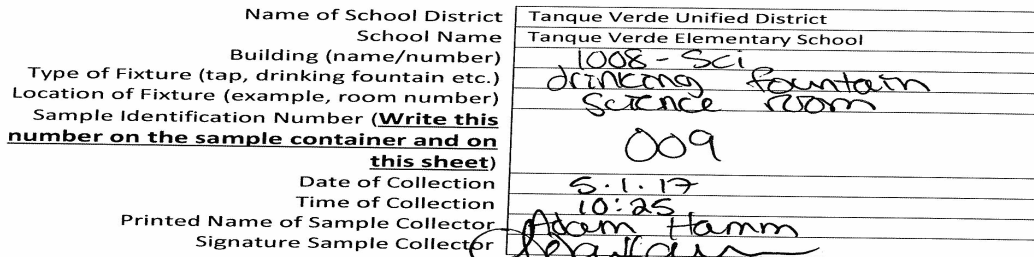 Name of School District Tanque Verde Unified District
School Name Tanque Verde Elementary School
Building (name/number) 1008 - Sci
Type of Fixture (tap, drinking fountain etc.) drinking fountain
Location of Fixture (example, room number) Science room
Sample Identification Number (Write this
number on the sample container and on
this sheet) 009
Date of Collection 5.1.17
Time of Collection 10:25
Printed Name of Sample Collector Adam Hamm
Signature Sample Collector